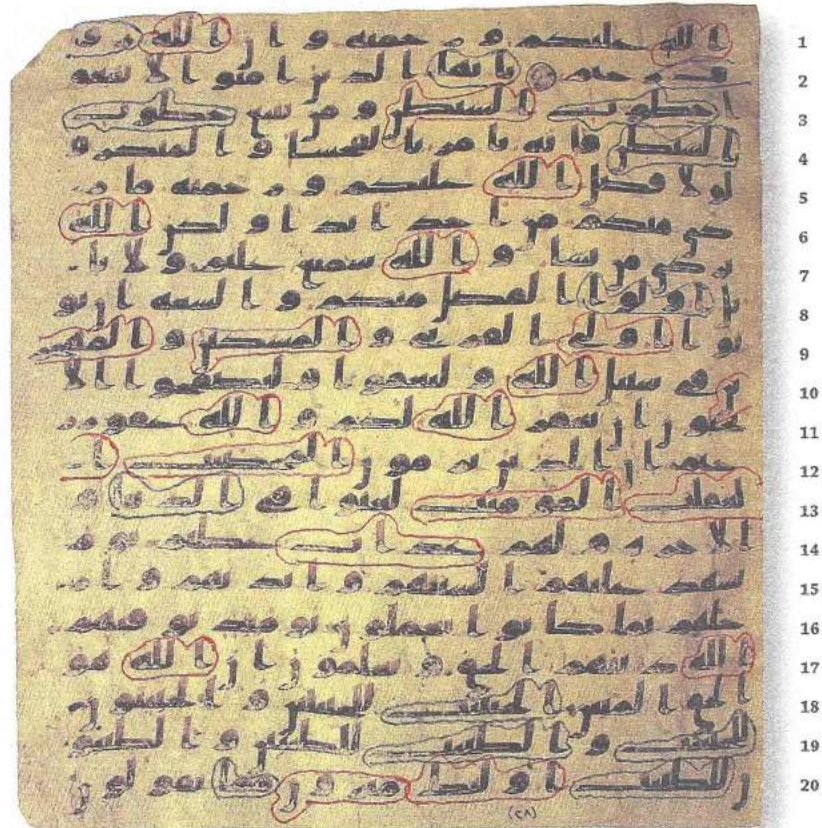 الله عليكم و رحمته و ان الله ر و 1
ف رحيم يايها الذين امنوا لا تتبعو 2
ا خطوت الشيطن و من يتبع خطوت 3
الشيطن فانه يامر بالفحشا و المنكر و 4
لو لا فضل الله عليكم و رحمته ما ز 5
كى منكم من احد ابدا و لكن الله 6
يزكى من يشا و الله سميع عليم و لا يا 7
تل اولوا الفضل منكم و السعه ان يو 8
توا اولى القربى و المسكين و المهجر 9
ين فى سبيل الله و ليعفوا و ليصفحوا الا 10
تحبون ان يغفر الله لكم و الله غفور ر 11
حيم ان الذين يرمون المحصنت ا 12
لغفلت المومنت لعنوا فى الدنيا و 13
الاخره و لهم عذاب عظيم يوم 14
تشهد عليهم السنتهم و ايديهم و ار 15
جلهم بما كانوا يعملون يومئذ يوفيهم 16
الله دينهم الحق و يعلمون ان الله هو 17
الحق المبين الخبيثت للخبيثين و الخبيثون 18
للخبيثت و الطيبت للطيبين و الطيبو 19
ن للطيبت اولئك مبرون مما يقولون 20
(٢٨)